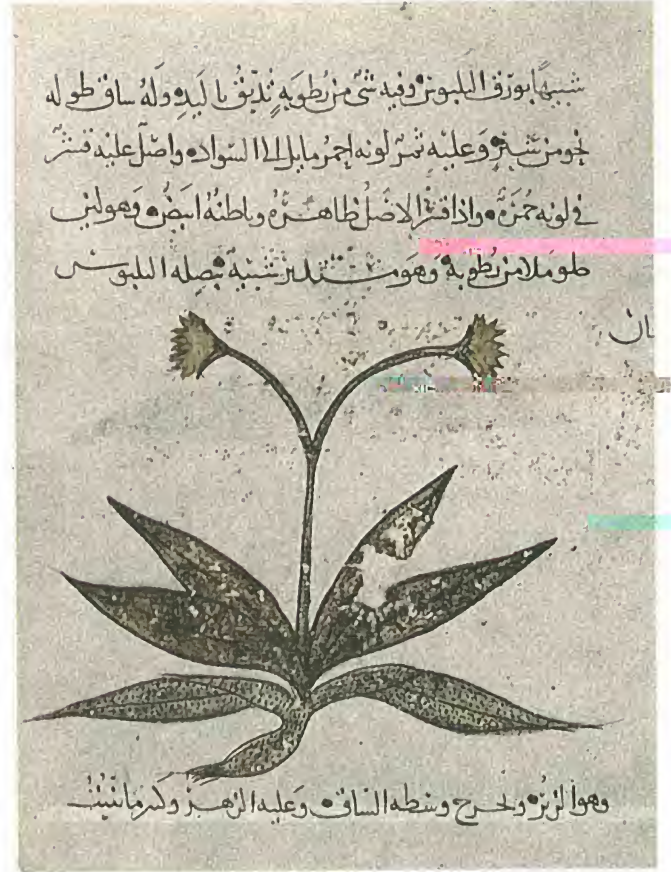 شبيها بورق البلبوس وفيه شئ من رطوبة تدبق باليد وله ساق طوله
نحو من شبر وعليه ثمر لونه احمر مايل الى السواد واصل عليه قشر
في لونه حمرة واذا قشر الاصل ظاهره وباطنه ابيض وهو لين
طو ملا من رطوبة وهو مستدير شبيه ببصلة البلبوس
ان
وهو ويخرج وسطه الساق وعليه الزهر